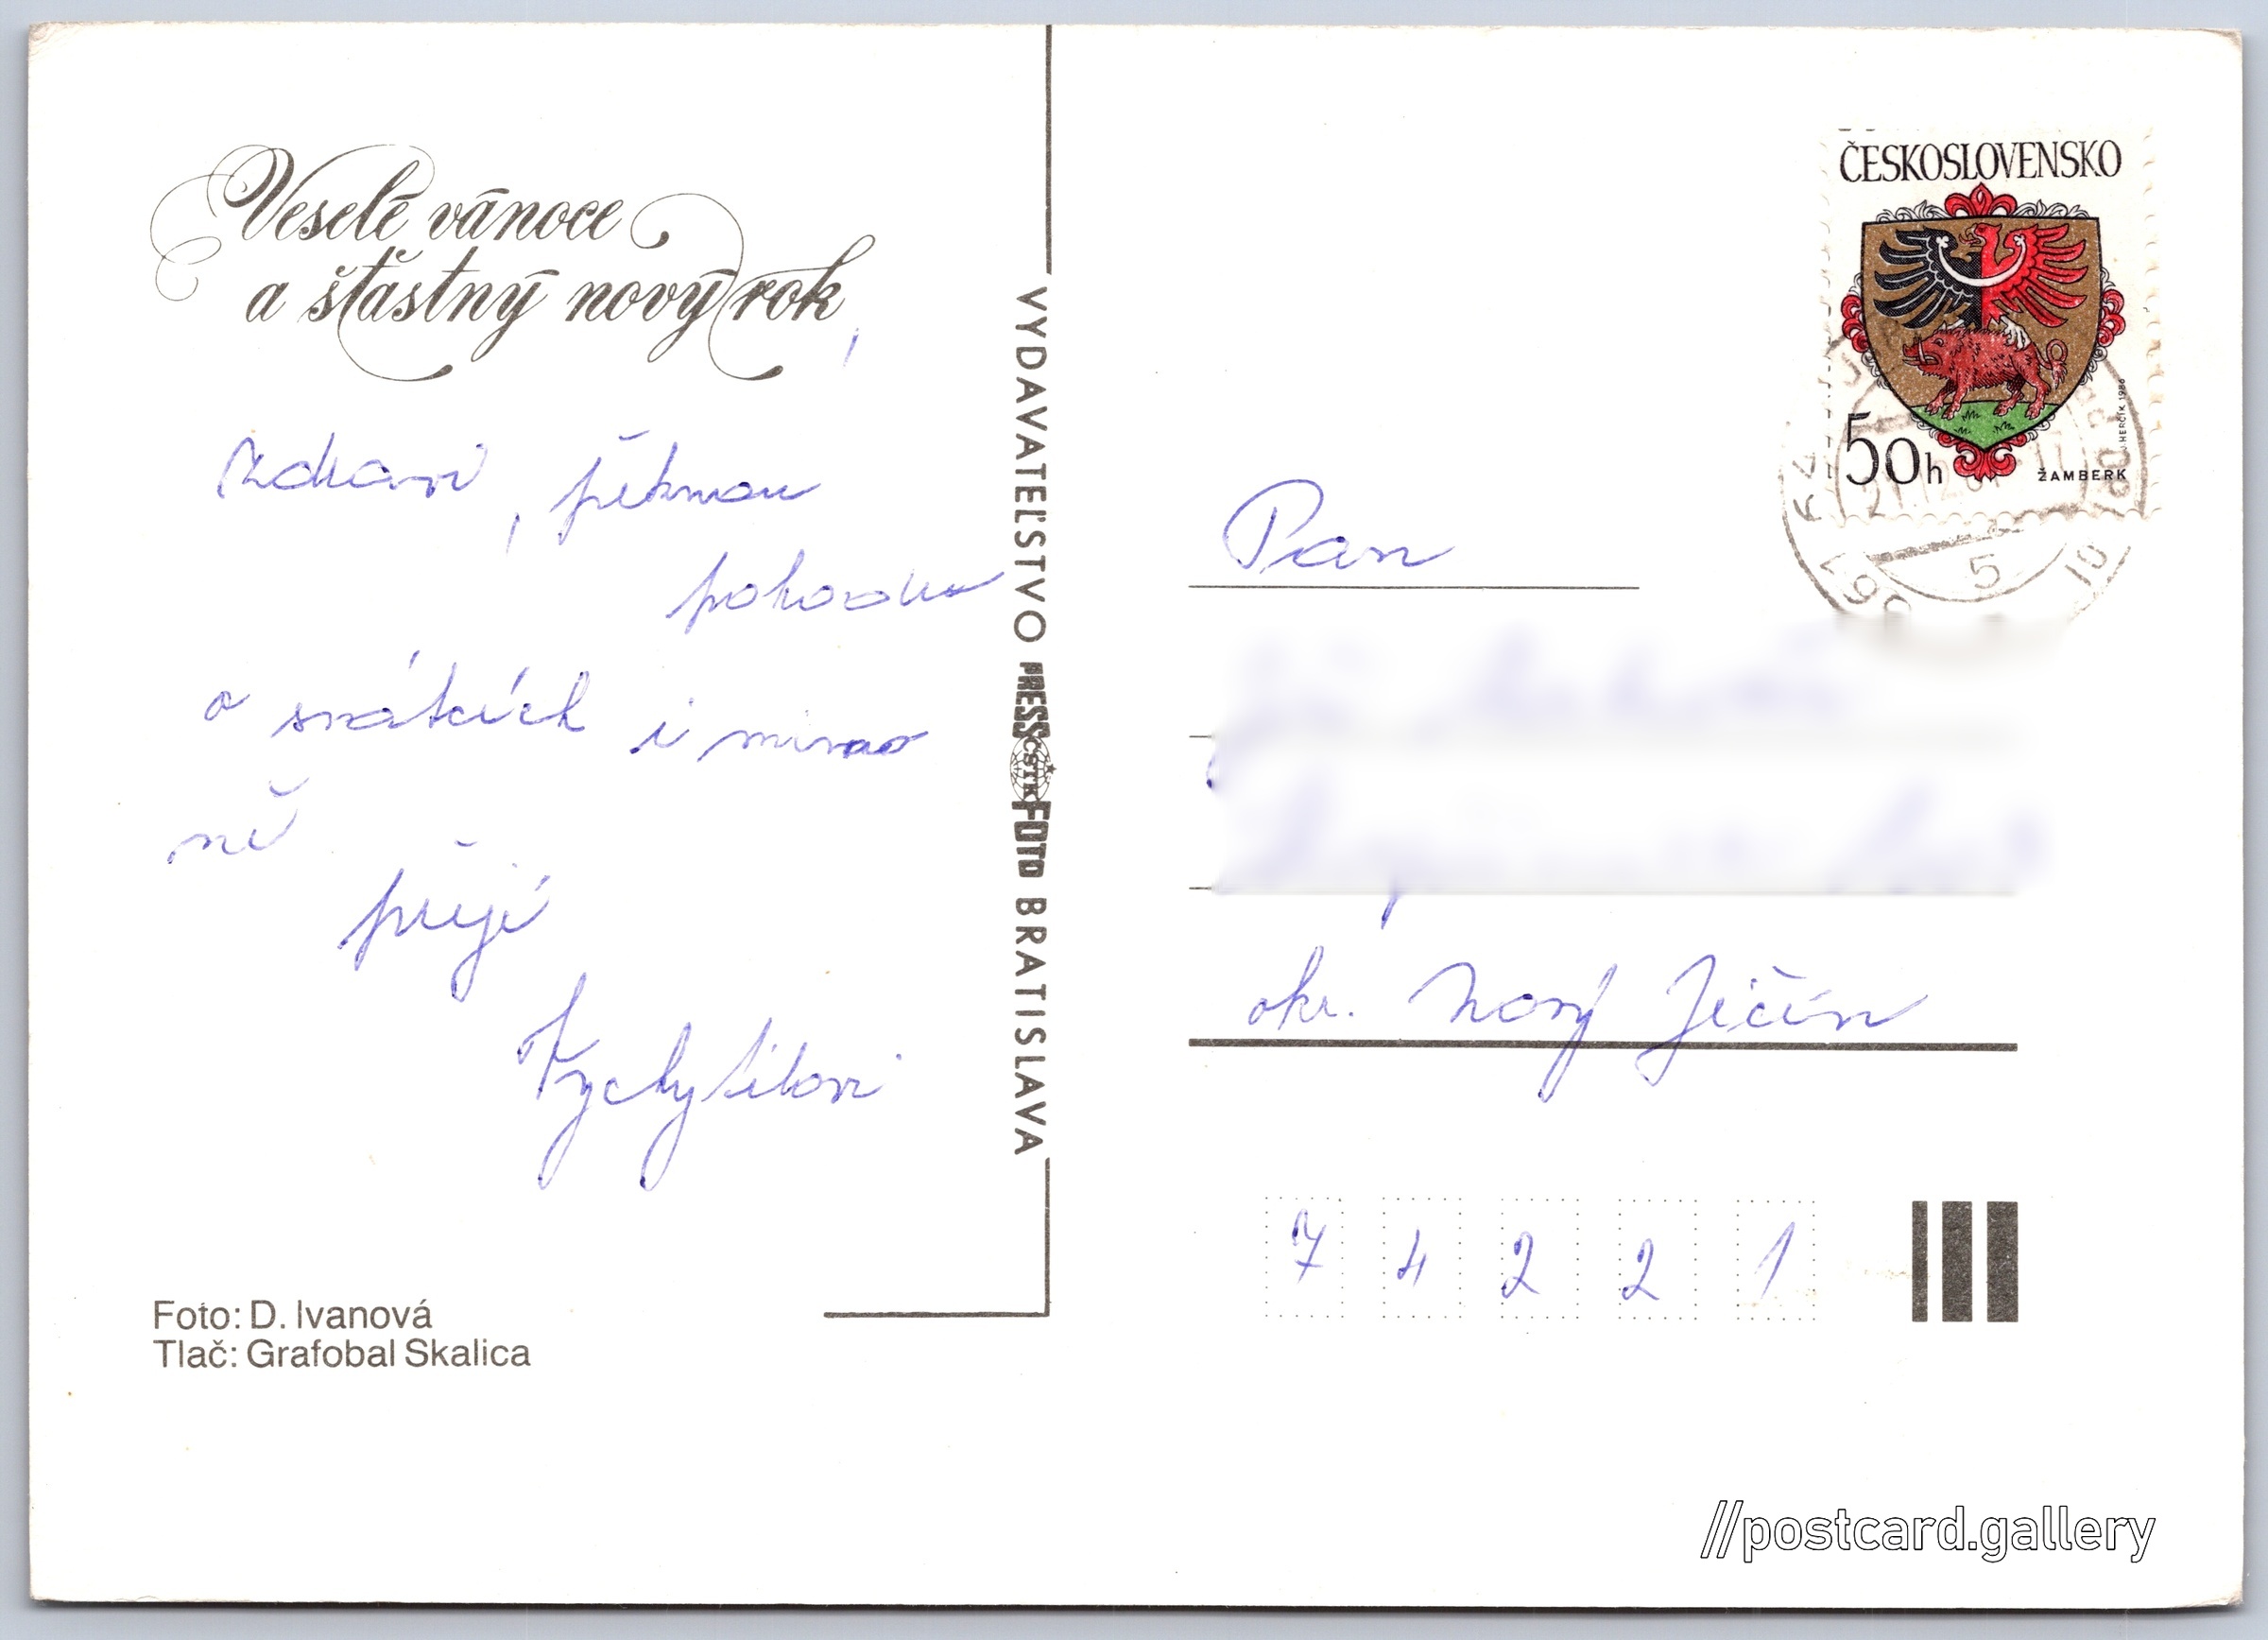 Veselé vánoce
a šťastný nový rok
,
zdraví, pěknou
pohodu
o svátcích i mimo
ně
přejí
Vychytilovi
Foto: D. Ivanová
Tlač: Grafobal Skalica
VYDAVATEĽSTVO PRESSFOTO BRATISLAVA
ČSTK
ČESKOSLOVENSKO
50h
ŽAMBERK
J. HERČÍK 1986
Pan
okr. Nový Jičín
7 4 2 2 1
//postcard.gallery